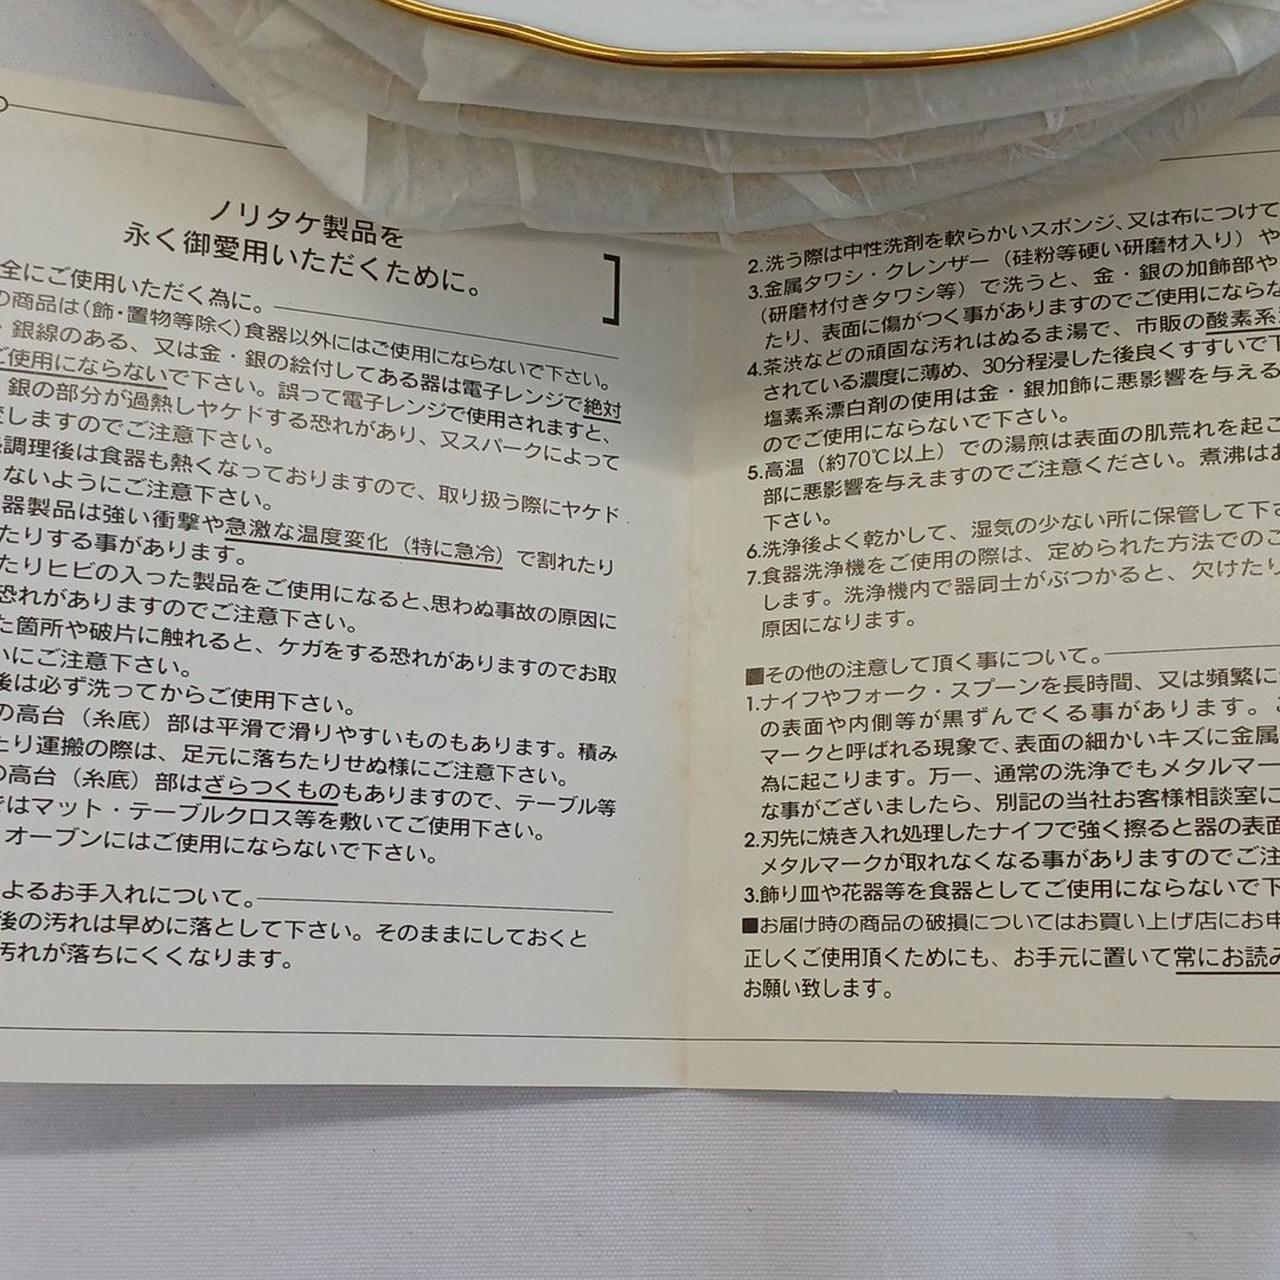 ノリタケ製品を
永く御愛用いただくために。
全にご使用いただく為に。
の商品は(飾・置物等除く)食器以外にはご使用にならないで下さい。
・銀線のある、又は金・銀の絵付してある器は電子レンジで絶対
ご使用にならないで下さい。誤って電子レンジで使用されますと、
銀の部分が過熱しヤケドする恐れがあり、又スパークによって
しますのでご注意下さい。
調理後は食器も熱くなっておりますので、取り扱う際にヤケド
ないようにご注意下さい。
器製品は強い衝撃や急激な温度変化(特に急冷)で割れたり
たりする事があります。
たりヒビの入った製品をご使用になると、思わぬ事故の原因に
恐れがありますのでご注意下さい。
た箇所や破片に触れると、ケガをする恐れがありますのでお取
いにご注意下さい。
後は必ず洗ってからご使用下さい。
の高台(糸底)部は平滑で滑りやすいものもあります。積み
たり運搬の際は、足元に落ちたりせぬ様にご注意下さい。
の高台(糸底)部はざらつくものもありますので、テーブル等
ではマット・テーブルクロス等を敷いてご使用下さい。
オーブンにはご使用にならないで下さい。
よるお手入れについて。
後の汚れは早めに落として下さい。そのままにしておくと
汚れが落ちにくくなります。
2.洗う際は中性洗剤を軟らかいスポンジ、又は布につけて
3.金属タワシ・クレンザー(硅粉等硬い研磨材入り)や
(研磨材付きタワシ等)で洗うと、金・銀の加飾部や
たり、表面に傷がつく事がありますのでご使用にならな
4.茶渋などの頑固な汚れはぬるま湯で、市販の酸素系
されている濃度に薄め、30分程浸した後良くすすいで下
塩素系漂白剤の使用は金・銀加飾に悪影響を与える
のでご使用にならないで下さい。
5.高温(約70℃以上)での湯煎は表面の肌荒れを起こ
部に悪影響を与えますのでご注意ください。煮沸はお
下さい。
6.洗浄後よく乾かして、湿気の少ない所に保管して下さ
7.食器洗浄機をご使用の際は、定められた方法でのご
します。洗浄機内で器同士がぶつかると、欠けたり
原因になります。
■その他の注意して頂く事について。
1.ナイフやフォーク・スプーンを長時間、又は頻繁に
の表面や内側等が黒ずんでくる事があります。こ
マークと呼ばれる現象で、表面の細かいキズに金属
為に起こります。万一、通常の洗浄でもメタルマー
な事がございましたら、別記の当社お客様相談室に
2.刃先に焼き入れ処理したナイフで強く擦ると器の表面
メタルマークが取れなくなる事がありますのでご注
3.飾り皿や花器等を食器としてご使用にならないで下
■お届け時の商品の破損についてはお買い上げ店にお申
正しくご使用頂くためにも、お手元に置いて常にお読み
お願い致します。